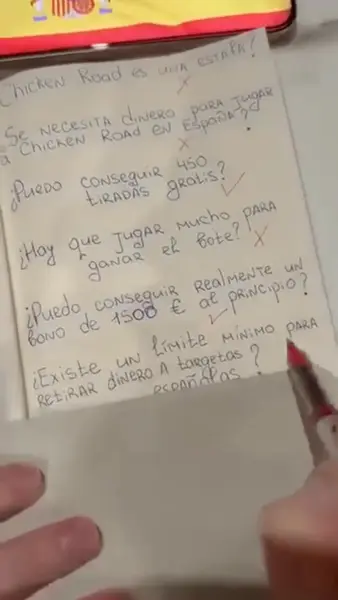 Chicken Road es una estafa?
Se necesita dinero para jugar
a Chicken Road en España?
¿Puedo conseguir 450
tiradas gratis?
¿Hay que jugar mucho para
ganar el bote?
¿Puedo conseguir realmente un
bono de 1500 € al principio?
¿Existe un límite mínimo para
retirar dinero a targetas
españolas?